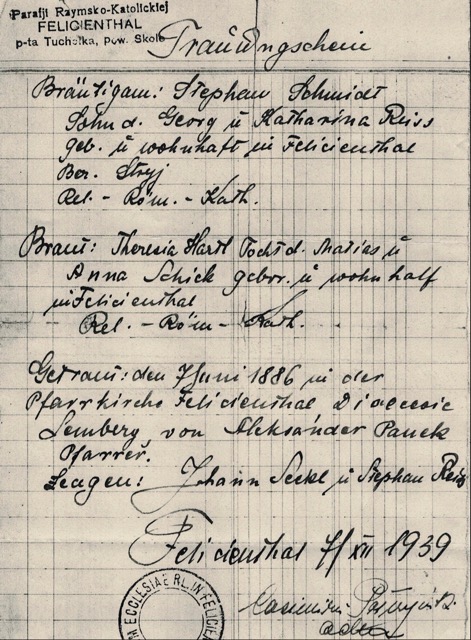 Parafji Rzymsko-Katolickiej
FELICIENTHAL
p-ta Tucholka, pow. Skole
Trauungschein
Bräutigam: Stephan Schmidt
Sohn d. Georg u Katharina Reiss
geb. u wohnhaft in Felicienthal
Bez. Stryj
Rel. - Röm. - Kath.
Braut: Theresia Hartl Tocht d. Matias u
Anna Schick gebor. u wohnhaft
in Felicienthal
Rel. - Röm - Kath.
Getraut: den 7 Juni 1886 in der
Pfarrkirche Felicienthal Diaecesie
Lemberg von Aleksander Panek
Pfarrer.
Zeugen: Johann Seckl u Stephan Reiss
Felicienthal 7/XII 1939
ECCLESIAE RL. IN FELICIEN
Casimirus